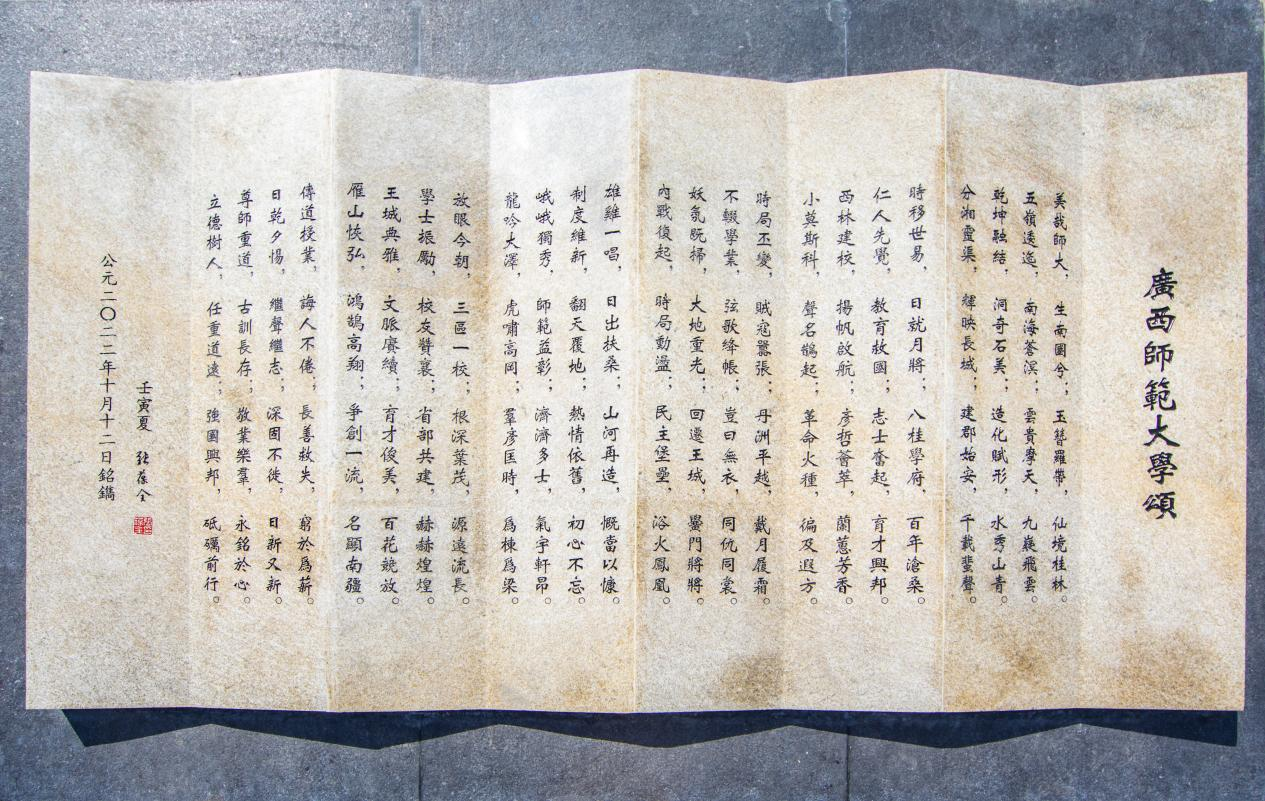 廣西師範大學頌
美哉師大，生南國兮；玉簪羅帶，仙境桂林。
五嶺逶迤，南海蒼溟；雲貴摩天，九嶷飛雲。
乾坤融結，洞奇石美；造化賦形，水秀山青。
分湘靈渠，輝映長城；建郡始安，千載蜚聲。
時移世易，日就月將；八桂學府，百年滄桑。
仁人先覺，教育救國；志士奮起，育才興邦。
西林建校，揚帆啟航；彥哲薈萃，蘭蕙芳香。
小莫斯科，聲名鵲起；革命火種，徧及遐方。
時局丕變，賊寇囂張；丹洲平越，戴月履霜。
不輟學業，弦歌絳帳；豈曰無衣，同仇同裳。
妖氛既掃，大地重光；回遷王城，黌門將將。
內戰復起，時局動盪；民主堡壘，浴火鳳凰。
雄雞一唱，日出扶桑；山河再造，慨當以慷。
制度維新，翻天覆地；熱情依舊，初心不忘。
峨峨獨秀，師範益彰；濟濟多士，氣宇軒昂。
龍吟大澤，虎嘯高岡；羣彥匡時，爲棟爲梁。
放眼今朝，三區一校；根深葉茂，源遠流長。
學士振勵，校友贊襄；省部共建，赫赫煌煌。
王城典雅，文脈賡續；育才俊美，百花競放。
雁山恢弘，鴻鵠高翔；爭創一流，名顯南疆。
傳道授業，誨人不倦；長善救失，窮於爲薪。
日乾夕惕，繼聲繼志；深固不徙，日新又新。
尊師重道，古訓長存；敬業樂羣，永銘於心。
立德樹人，任重道遠；強國興邦，砥礪前行。
壬寅夏 張葆全
公元二〇二二年十月十二日銘鐫